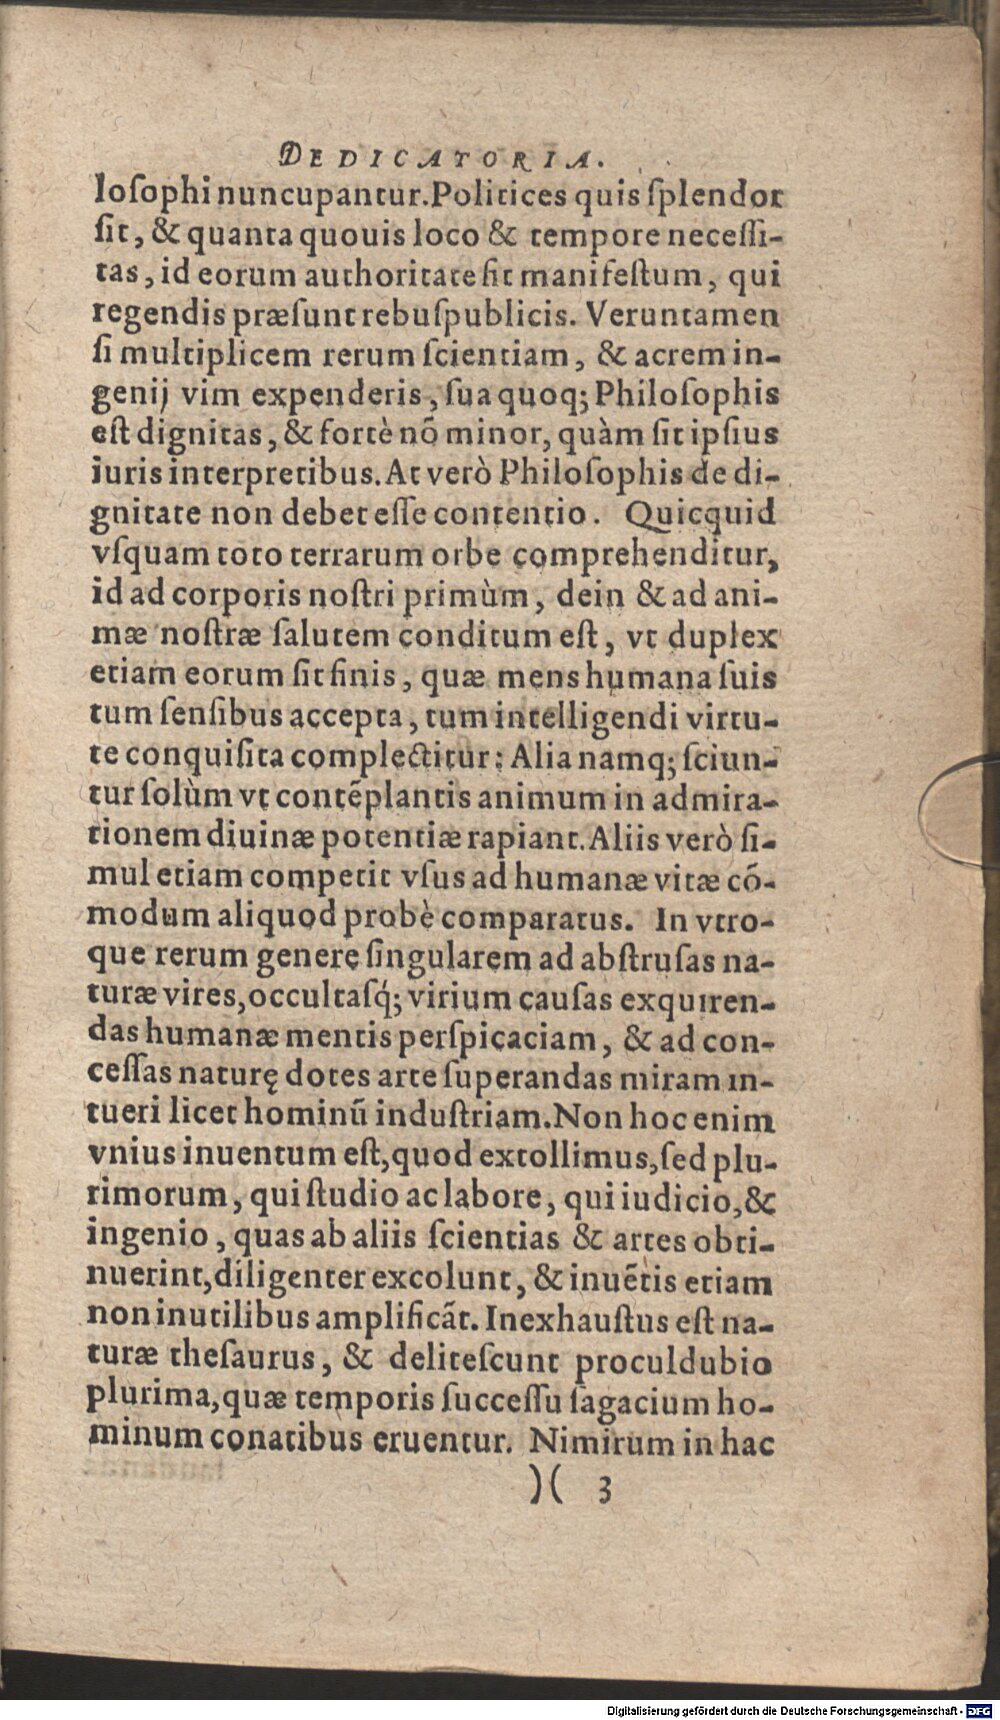 DEDICATORIA.
loſophi nuncupantur. Politices quis ſplendor
ſit, & quanta quouis loco & tempore neceſſi-
tas, id eorum authoritate ſit manifeſtum, qui
regendis præſunt rebuſpublicis. Veruntamen
ſi multiplicem rerum ſcientiam, & acrem in-
genij vim expenderis, ſua quoq; Philoſophis
eſt dignitas, & fortè nõ minor, quàm ſit ipſius
iuris interpretibus. At verò Philoſophis de di-
gnitate non debet eſſe contentio. Quicquid
vſquam toto terrarum orbe comprehenditur,
id ad corporis noſtri primùm, dein & ad ani-
mæ noſtræ ſalutem conditum eſt, vt duplex
etiam eorum ſit finis, quæ mens humana ſuis
tum ſenſibus accepta, tum intelligendi virtu-
te conquiſita complectitur: Alia namq; ſciun-
tur ſolùm vt contẽplantis animum in admira-
tionem diuinæ potentiæ rapiant. Aliis verò ſi-
mul etiam competit vſus ad humanæ vitæ cõ-
modum aliquod probè comparatus. In vtro-
que rerum genere ſingularem ad abſtruſas na-
turæ vires, occultaſq́; virium cauſas exquiren-
das humanæ mentis perſpicaciam, & ad con-
ceſſas naturę dotes arte ſuperandas miram in-
tueri licet hominũ induſtriam. Non hoc enim
vnius inuentum eſt, quod extollimus, ſed plu-
rimorum, qui ſtudio ac labore, qui iudicio, &
ingenio, quas ab aliis ſcientias & artes obti-
nuerint, diligenter excolunt, & inuẽtis etiam
non inutilibus amplificãt. Inexhauſtus eſt na-
turæ theſaurus, & deliteſcunt proculdubio
plurima, quæ temporis ſucceſſu ſagacium ho-
minum conatibus eruentur. Nimirum in hac
)( 3
Digitalisierung gefördert durch die Deutsche Forschungsgemeinschaft - DFG